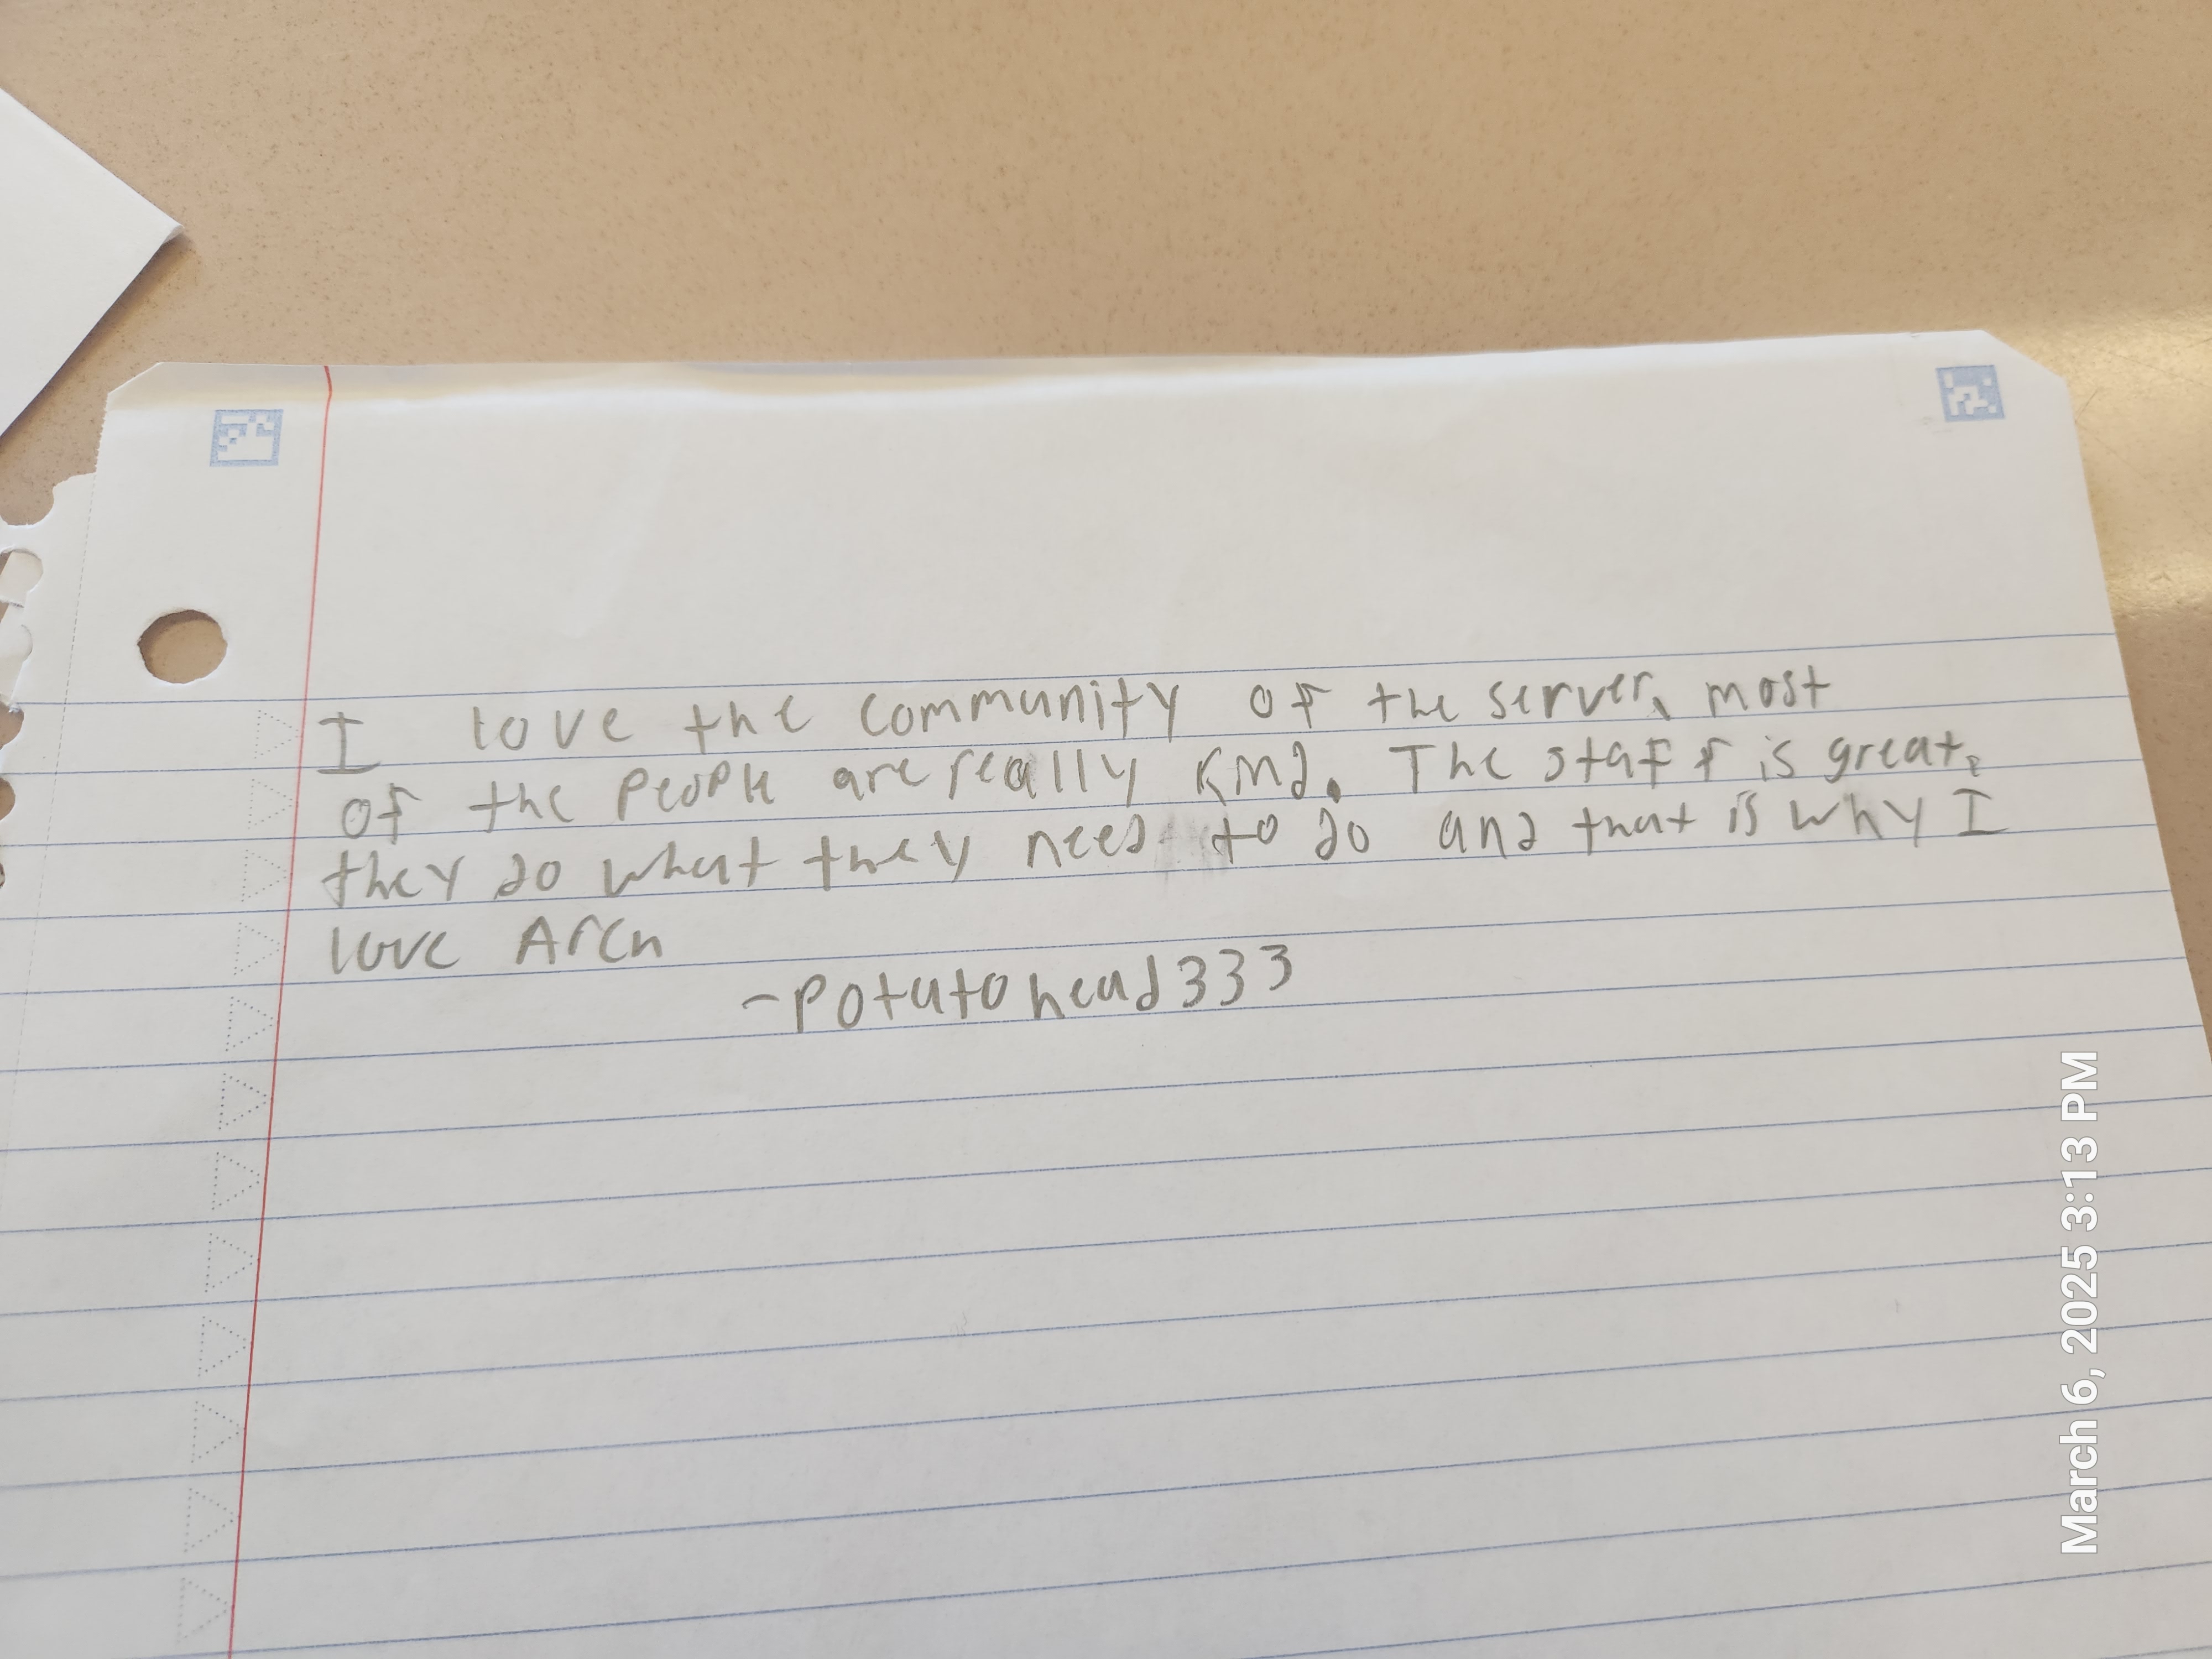 I love the community of the server, most
of the people are really kind. The staff is great,
they do what they need to do and that is why I
love Arch
-Potatohead333
March 6, 2025 3:13 PM